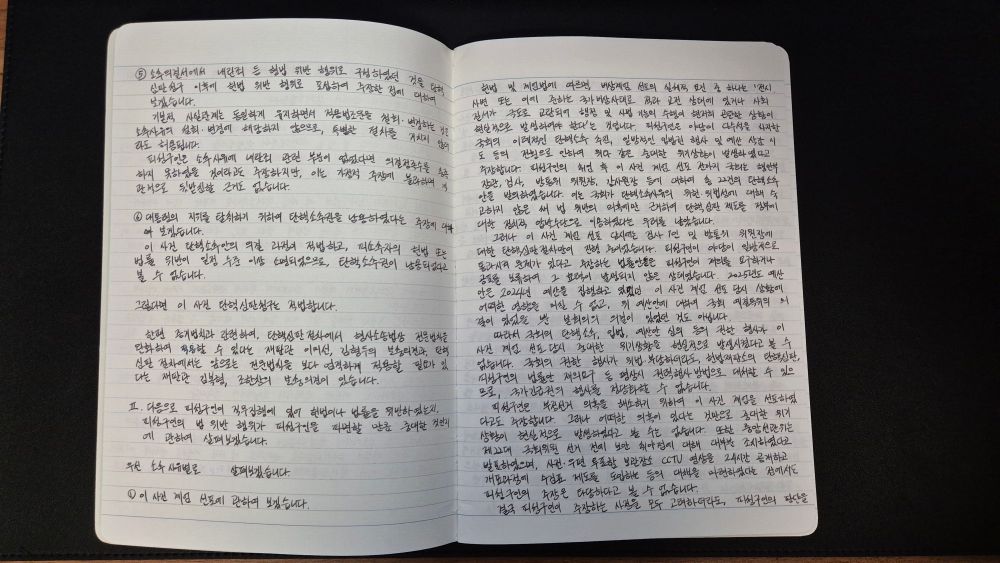 ⑤ 소추의결서에서 내란죄 등 형법 위반 행위로 구성하였던 것을 탄핵
심판청구 이후에 헌법 위반 행위로 포섭하여 주장한 점에 대하여
보겠습니다.
기본적 사실관계는 동일하게 유지하면서 적용법조문을 철회·변경하는 것은
소추사유의 철회·변경에 해당하지 않으므로, 특별한 절차를 거치지 않더
라도 허용됩니다.
피청구인은 소추사유에 내란죄 관련 부분이 없었다면 의결정족수를 충족
하지 못하였을 것이라고도 주장하지만, 이는 가정적 주장에 불과하며 객
관적으로 뒷받침할 근거도 없습니다.
⑥ 대통령의 지위를 탈취하기 위하여 탄핵소추권을 남용하였다는 주장에 대하
여 보겠습니다.
이 사건 탄핵소추안의 의결 과정이 적법하고, 피소추자의 헌법 또는
법률 위반이 일정 수준 이상 소명되었으므로, 탄핵소추권이 남용되었다고
볼 수 없습니다.
그렇다면 이 사건 탄핵심판청구는 적법합니다.
한편 증거법칙과 관련하여, 탄핵심판절차에서 형사소송법상 전문법칙을
완화하여 적용할 수 있다는 재판관 이미선, 김형두의 보충의견과, 탄핵
심판절차에서는 앞으로는 전문법칙을 보다 엄격하게 적용할 필요가 있
다는 재판관 김복형, 조한창의 보충의견이 있습니다.
Ⅱ. 다음으로 피청구인이 직무집행에 있어 헌법이나 법률을 위반하였는지,
피청구인의 법 위반 행위가 피청구인을 파면할 만큼 중대한 것인지
에 관하여 살펴보겠습니다.
우선 소추사유별로 살펴보겠습니다.
① 이 사건 계엄 선포에 관하여 보겠습니다.
헌법 및 계엄법에 따르면 비상계엄 선포의 실체적 요건 중 하나는 '전시
사변 또는 이에 준하는 국가비상사태로 적과 교전 상태에 있거나 사회
질서가 극도로 교란되어 행정 및 사법 기능의 수행이 현저히 곤란한 상황이
현실적으로 발생하여야 한다'는 것입니다. 피청구인은 야당이 다수의석을 차지한
국회의 이례적인 탄핵소추 추진, 일방적인 입법권 행사 및 예산 삭감 시
도 등의 전횡으로 인하여 위와 같은 중대한 위기상황이 발생하였다고
주장합니다. 피청구인의 취임 후 이 사건 계엄 선포 전까지 국회는 행안부
장관, 검사, 방통위 위원장, 감사원장 등에 대하여 총 22건의 탄핵소추
안을 발의하였습니다. 이는 국회가 탄핵소추사유의 위헌·위법성에 대해 숙
고하지 않은 채 법 위반의 의혹에만 근거하여 탄핵심판 제도를 정부에
대한 정치적 압박수단으로 이용하였다는 우려를 낳았습니다.
그러나 이 사건 계엄 선포 당시에는 검사 1인 및 방통위 위원장에
대한 탄핵심판절차만이 진행 중이었습니다. 피청구인이 야당이 일방적으로
통과시켜 문제가 있다고 주장하는 법률안들은 피청구인이 재의를 요구하거나
공포를 보류하여 그 효력이 발생되지 않은 상태였습니다. 2025년도 예산
안은 2024년 예산을 집행하고 있었던 이 사건 계엄 선포 당시 상황에
어떠한 영향을 미칠 수 없고, 위 예산안에 대하여 국회 예결특위의 의
결이 있었을 뿐 본회의의 의결이 있었던 것도 아닙니다.
따라서 국회의 탄핵소추, 입법, 예산안 심의 등의 권한 행사가 이
사건 계엄 선포 당시 중대한 위기상황을 현실적으로 발생시켰다고 볼 수
없습니다. 국회의 권한 행사가 위법·부당하더라도, 헌법재판소의 탄핵심판,
피청구인의 법률안 재의요구 등 평상시 권력행사방법으로 대처할 수 있으
므로, 국가긴급권의 행사를 정당화할 수 없습니다.
피청구인은 부정선거 의혹을 해소하기 위하여 이 사건 계엄을 선포하였
다고도 주장합니다. 그러나 어떠한 의혹이 있다는 것만으로 중대한 위기
상황이 현실적으로 발생하였다고 볼 수는 없습니다. 또한 중앙선관위는
제22대 국회의원 선거 전에 보안 취약점에 대해 대부분 조치하였다고
발표하였으며, 사전·우편 투표함 보관장소 CCTV 영상을 24시간 공개하고
개표과정에 수검표 제도를 도입하는 등의 대책을 마련하였다는 점에서도
피청구인의 주장은 타당하다고 볼 수 없습니다.
결국 피청구인이 주장하는 사정을 모두 고려하더라도, 피청구인의 판단을